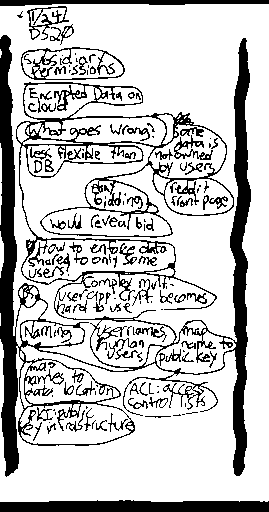 1/24
DS20
Subsidiary
permissions
Encrypted Data on
cloud
What goes wrong?
Some
data is
not owned
by users
less flexible than
DB
reddit
front page
ebay
bidding
would reveal bid
How to enforce data
shared to only some
users?
Complex multi-
user app: crypt. becomes
hard to use
Naming
usernames,
human
users
map
name to
public key
map
names to
data location
ACL: access
control lists
PKI: public
key infrastructure